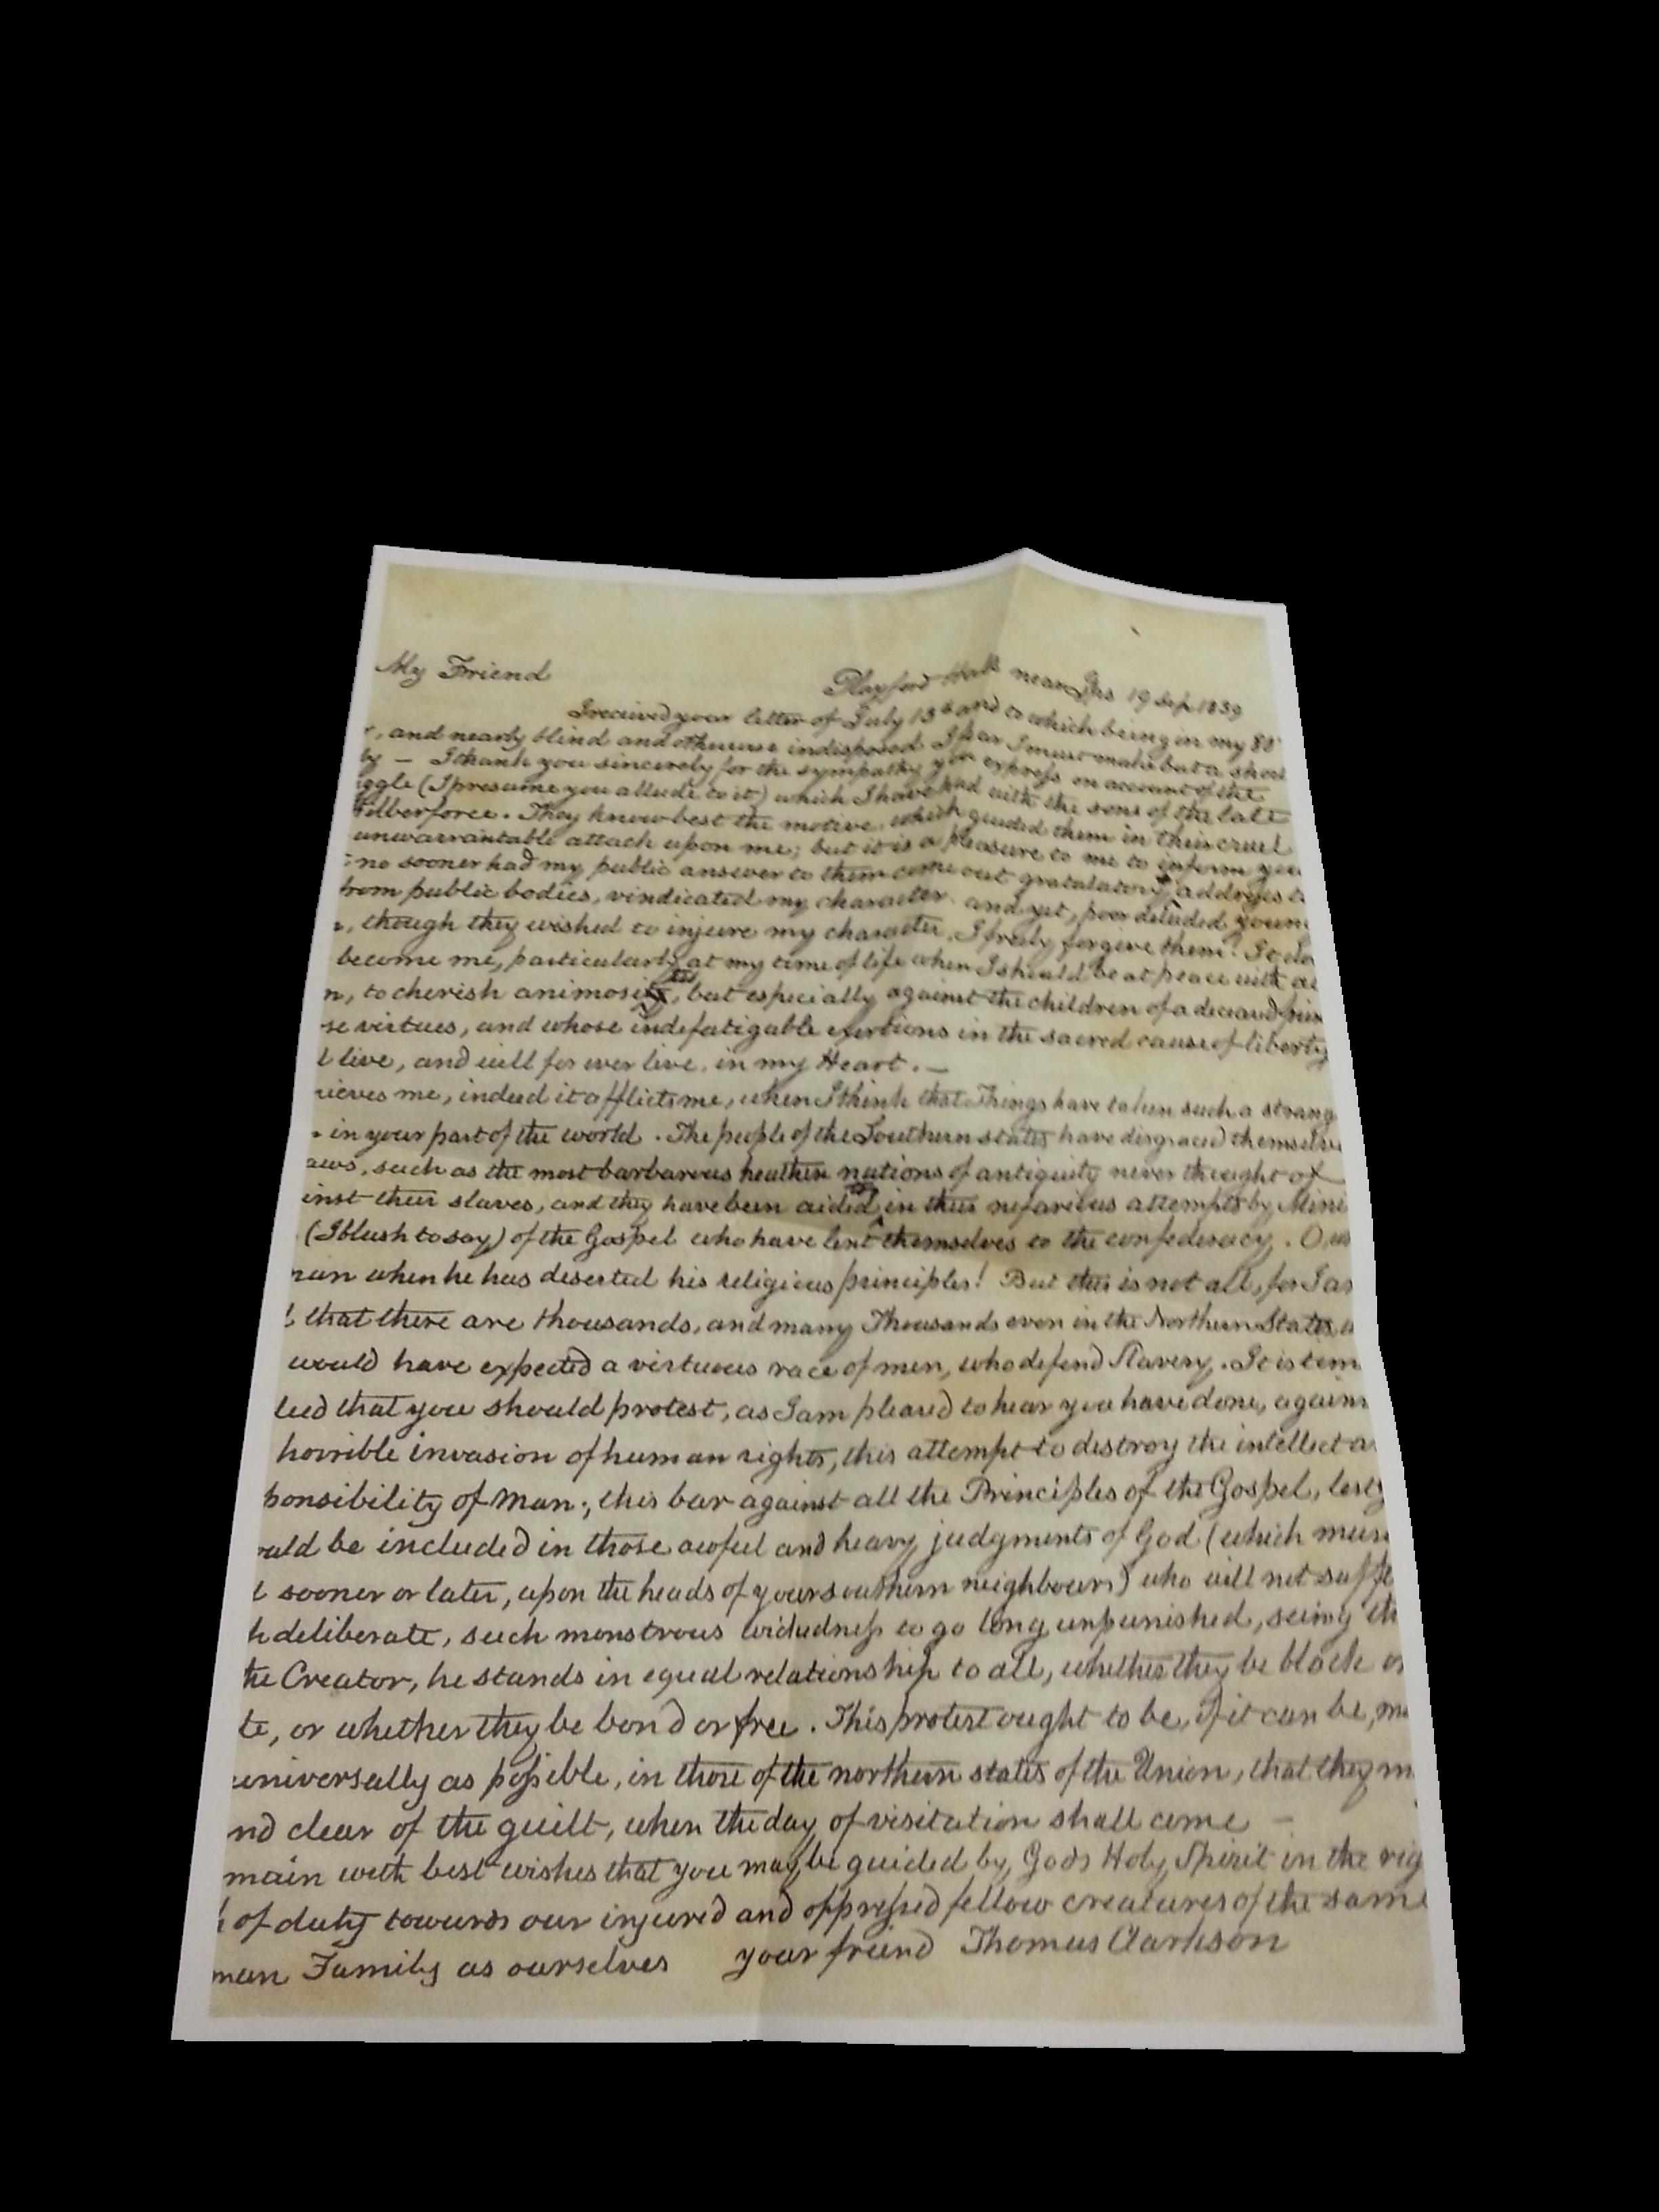 My Friend
Playford Hall near Ips 19 Sep 1839
I received your letter of July 13th and to which being in my 80
r, and nearly blind and otherwise indisposed I fear I must make but a short
ly — I thank you sincerely for the sympathy you express on account of the
uggle (I presume you allude to it) which I have had with the sons of the late
Wilberforce. They know best the motive which guided them in their cruel
unwarrantable attack upon me; but it is a pleasure to me to inform you
no sooner had my public answer to them come out gratulatory addresses to
from public bodies, vindicated my character. and yet, poor deluded young
, though they wished to injure my character, I freely forgive them.
become me, particularly at my time of life when I should be at peace with al
n, to cherish animosities, but especially against the children of a deceased frien
se virtues, and whose indefatigable exertions in the sacred cause of liberty
l live, and will for ever live, in my Heart. —
rieves me, indeed it afflicts me, when I think that Things have taken such a strang
in your part of the world. The people of the Southern states have disgraced themselve
aws, such as the most barbarous heathen nations of antiquity never thought of
inst their slaves, and they have been aided in their nefarious attempts by Mini
(I blush to say) of the Gospel who have lent themselves to the confederacy. O,
man when he has deserted his religious principles! But this is not all, for I a
d that there are thousands, and many Thousands even in the Northern States, w
would have expected a virtuous race of men, who defend Slavery. It is tim
eed that you should protest, as I am pleased to hear you have done, again
horrible invasion of human rights, this attempt to destroy the intellect a
ponsibility of Man; this bar against all the Principles of the Gospel, lest y
ould be included in those awful and heavy judgments of God (which mus
l sooner or later, upon the heads of your southern neighbours) who will not suffe
h deliberate, such monstrous wickedness to go long unpunished, seeing th
the Creator, he stands in equal relationship to all, whether they be black or
te, or whether they be bond or free. This protest ought to be, if it can be, m
universally as possible, in those of the northern states of the Union, that they m
nd clear of the guilt, when the day of visitation shall come —
main with best wishes that you may be guided by Gods Holy Spirit in the rig
h of duty towards our injured and oppressed fellow creatures of the same
man Family as ourselves your friend Thomas Clarkson